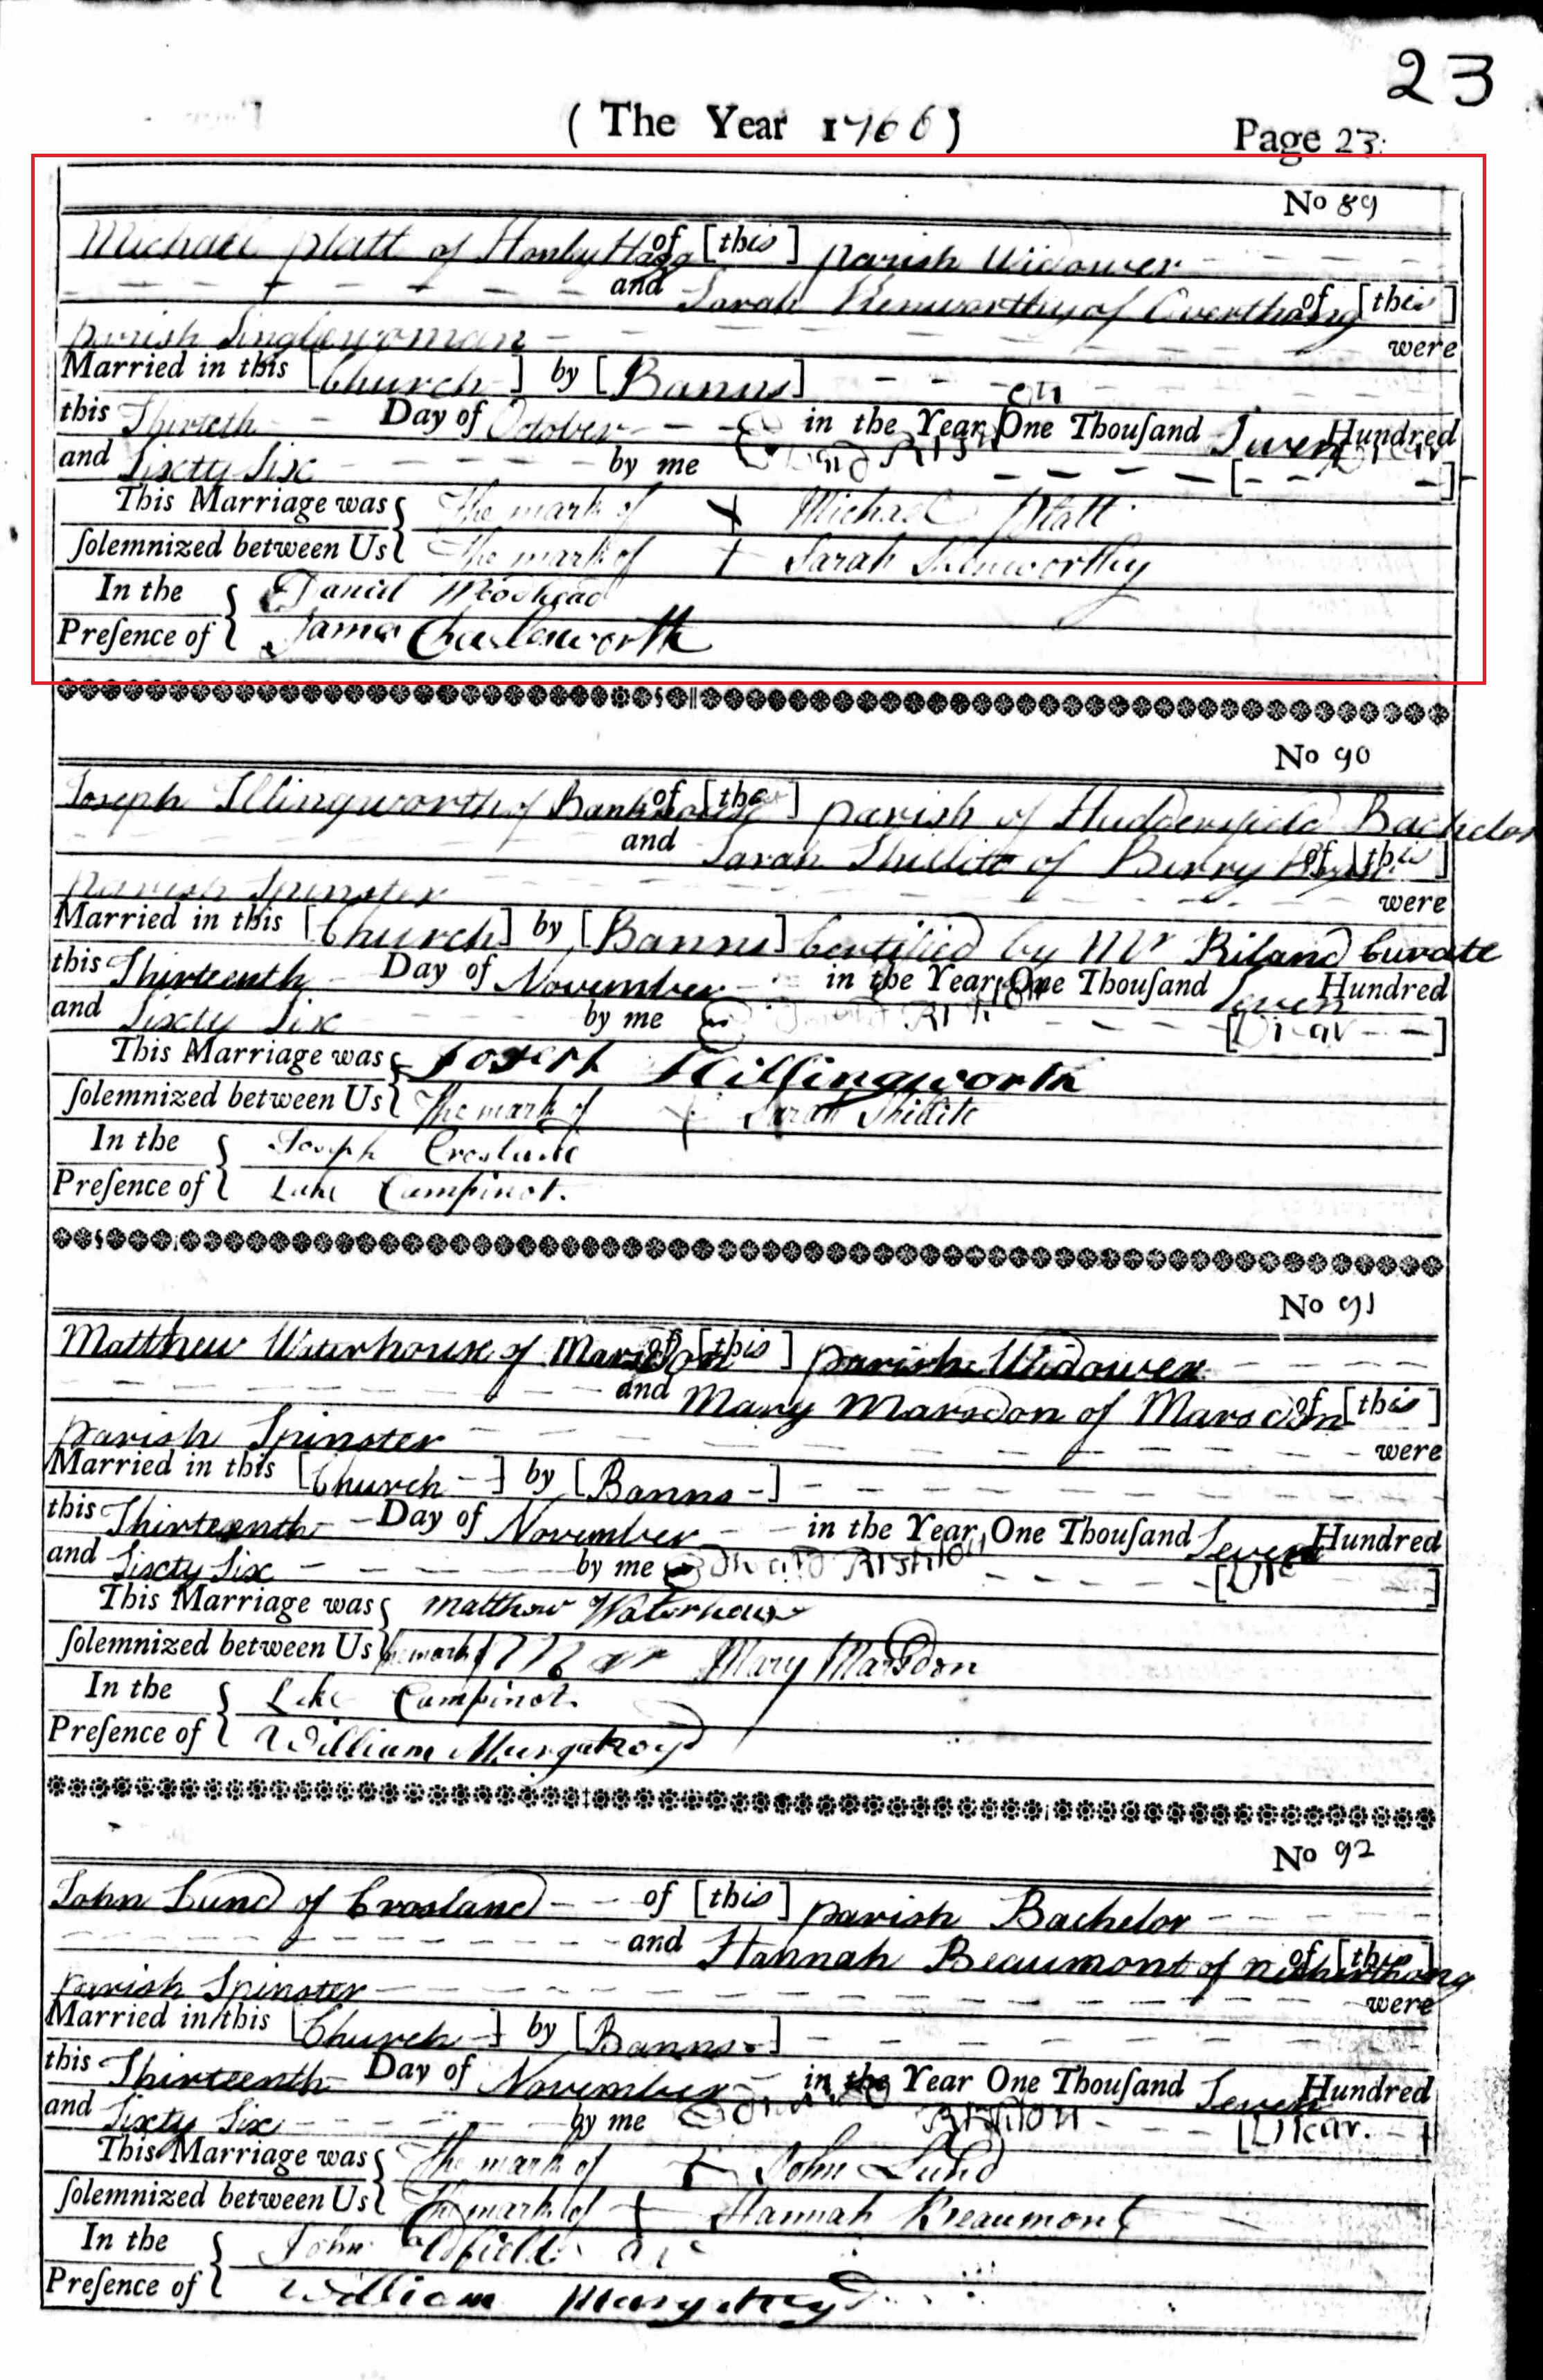 23
( The Year 1766 )
Page 23:
No 89
Michael Platt of Honley Hagg of [this] parish Widower
and Sarah Kenworthy of Overthong of [this]
parish Singlewoman were
Married in this [Church] by [Banns]
this Thirteth Day of October in the Year One Thouſand Seven Hundred
and Sixty Six by me Edward Rishton [Vicar]
This Marriage was { The mark of + Michael Platt
ſolemnized between Us { The mark of + Sarah Kenworthy
In the { Daniel Moorhead
Preſence of { James Charlesworth
No 90
Joseph Illingworth of Bankhouse of [the] parish of Huddersfield Bachelor
and Sarah Shillito of Berry of [this]
parish Spinster were
Married in this [Church] by [Banns] Certified by Mr Riland Curate
this Thirteenth Day of November in the Year One Thouſand Seven Hundred
and Sixty Six by me Edward Rishton [Vicar]
This Marriage was { Joseph Hillingworth
ſolemnized between Us { The mark of + Sarah Shillito
In the { Joseph Croslande
Preſence of { Luke Campinot.
No 91
Matthew Waterhouse of Marsdon of [this] parish Widower
and Mary Marsdon of Marsdon of [this]
parish Spinster were
Married in this [Church] by [Banns]
this Thirteenth Day of November in the Year One Thouſand Seven Hundred
and Sixty Six by me Edward Rishton [Vic]
This Marriage was { Matthew Waterhouse
ſolemnized between Us { The mark of Mary Marsdon
In the { Luke Campinot.
Preſence of { William Murgatroyd
No 92
John Lund of Crosland of [this] parish Bachelor
and Hannah Beaumont of Netherthong of [this]
parish Spinster were
Married in this [Church] by [Banns]
this Thirteenth Day of November in the Year One Thouſand Seven Hundred
and Sixty Six by me Edward Rishton [Vicar.]
This Marriage was { The mark of + John Lund
ſolemnized between Us { The mark of + Hannah Beaumont
In the { John Oldfield
Preſence of { William Murgatroyd